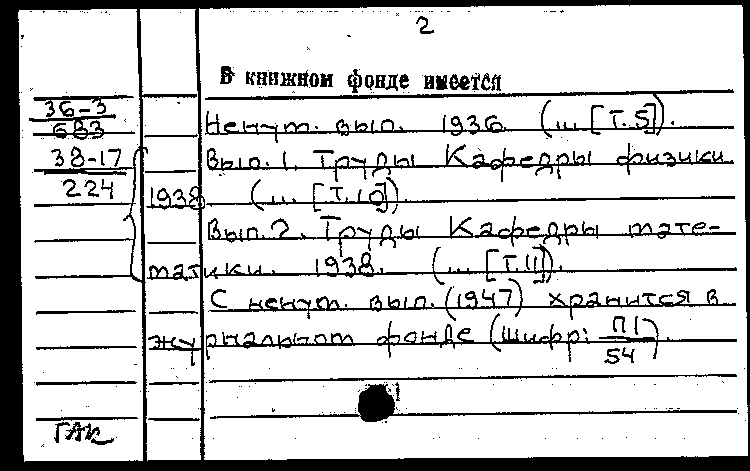 2
В книжном фонде имеется
36-3
683
Ненум. вып. 1936 (... [Т.5]).
38-17
224
Вып. 1. Труды Кафедры физики
1938. (... [Т.10]).
Вып. 2. Труды Кафедры мате-
матики. 1938. (... [Т.11]).
С ненум. вып. (1947) хранится в
журнальном фонде (шифр: П1/54).
ГАК